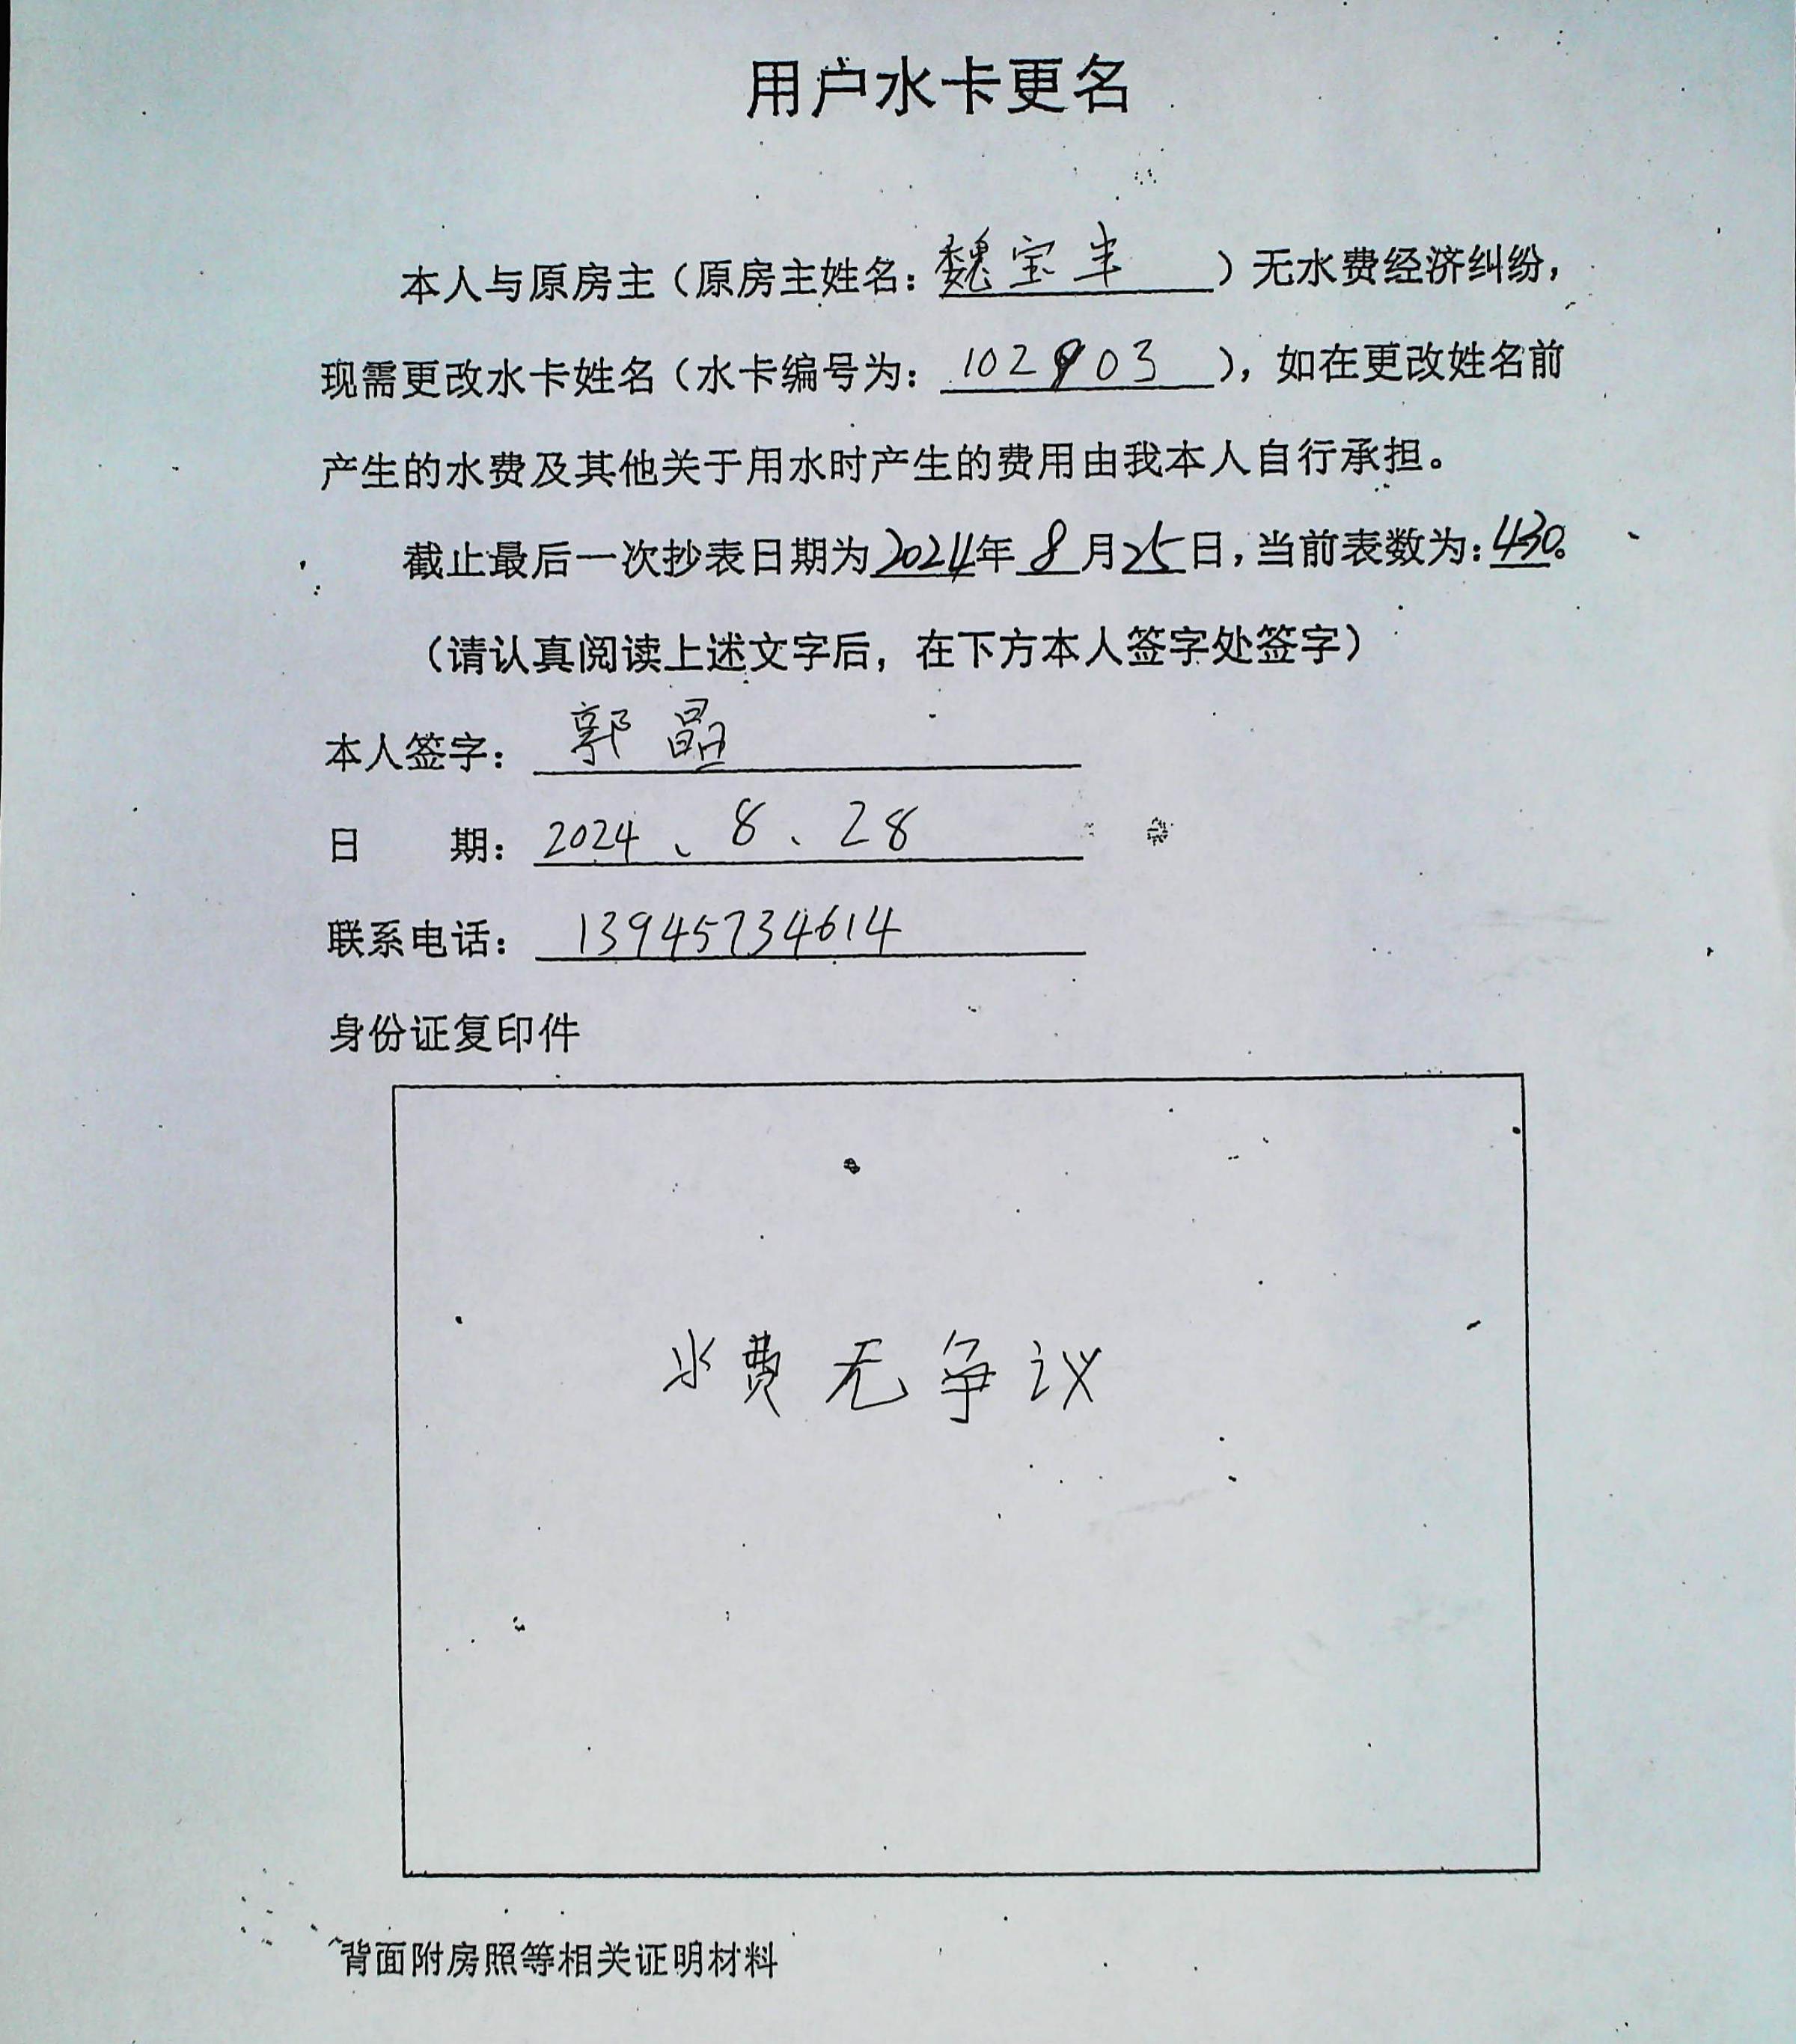 用户水卡更名
本人与原房主（原房主姓名：魏宝丰）无水费经济纠纷，
现需更改水卡姓名（水卡编号为：102903），如在更改姓名前
产生的水费及其他关于用水时产生的费用由我本人自行承担。
截止最后一次抄表日期为2024年8月25日，当前表数为：430。
（请认真阅读上述文字后，在下方本人签字处签字）
本人签字：郭晶
日 期：2024、8、28
联系电话：13945734614
身份证复印件
水费无争议
背面附房照等相关证明材料